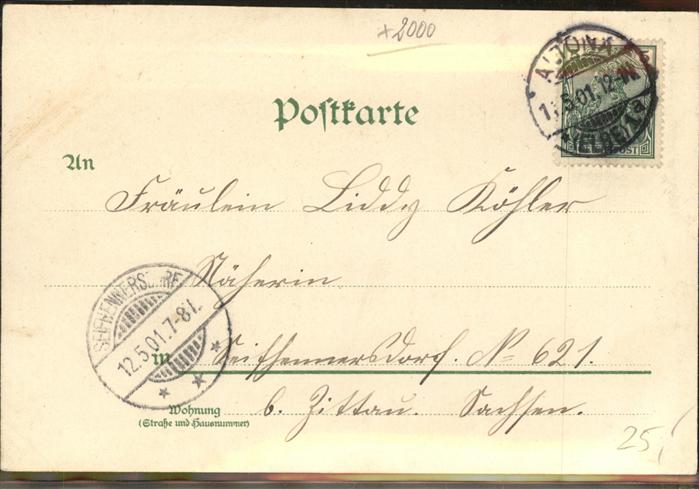 +2000
ALTONA
11.5.01. 12-1
(ELBE) 1a
Postkarte
An
Fräulein Liddy Köhler
Näherin
in Seifhennersdorf. No 621.
SEIFHENNERSDORF
12.5.01. 7-8V.
Wohnung
b. Zittau. Sachsen.
(Straße und Hausnummer)
25,